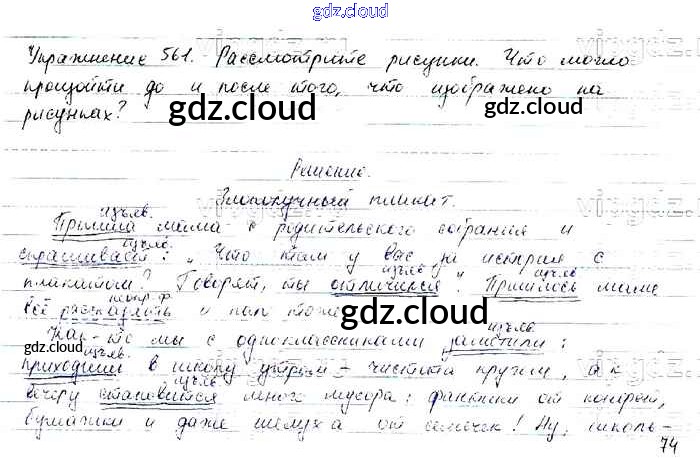 gdz.cloud
Упражнение 561. Рассмотрите рисунки. Что могло
произойти до и после того, что изображено на
рисунках?
gdz.cloud
gdz.cloud
Решение.
Злополучный плакат.
изъяв.
Пришла мама с родительского собрания и
изъяв.
спрашивает: „Что там у вас за история с
изъяв. изъяв.
плакатом? Говорят, ты отличился". Пришлось маме
неопр. ф.
всё рассказать и папе тоже
gdz.cloud
изъяв.
Как-то мы с одноклассниками заметили:
gdz.cloud
изъяв.
приходишь в школу утром - чистота кругом, а к
изъяв.
вечеру становится много мусора: фантики от конфет,
бумажки и даже шелуха от семечек! Ну, школь-
gdz.cloud
74